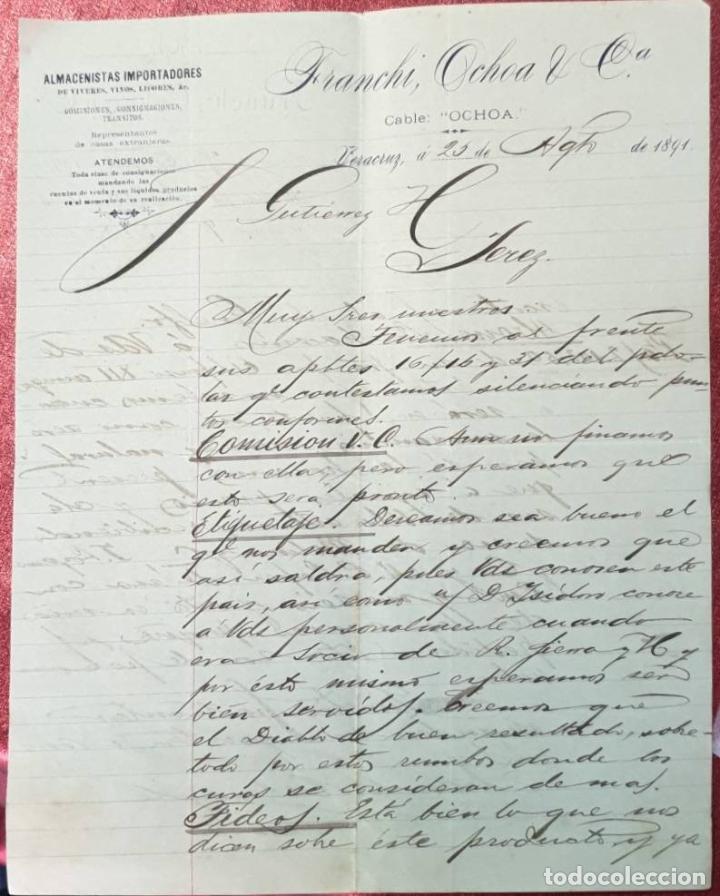 ALMACENISTAS IMPORTADORES
DE VIVERES, VINOS, LICORES, &c.
COMISIONES, CONSIGNACIONES,
TRANSITOS.
Representantes
de casas extranjeras
ATENDEMOS
Toda clase de consignaciones
mandando las
cuentas de venta y sus líquidos productos
en el momento de su realización.
Franchi, Ochoa & Ca
Cable: "OCHOA."
Veracruz, á 25 de Agto de 1891.
S Gutierrez H
Jerez.
Muy Sres nuestros
Tenemos al frente
sus aptles 16, 16 y 21 del pdo.
las qe contestamos silenciando pun-
tos conformes.
Comision V. C. Aun no finamos
con ella, pero esperamos que
esto sera pronto.
Etiquetaje. Deseamos sea bueno el
qe nos manden y creemos que
así saldrá, pues Vds conocen este
pais, así como D. Isidoro conoce
á Vds personalmente cuando
era Socio de R. Sierra y H y
por ésto mismo esperamos ser
bien servidos. Creemos que
el Diablo de buen resultado, sobre-
todo por estos rumbos donde los
curas se consideran de mas.
Fideos. Está bien lo que nos
dicen sobre éste producto y ya
todocoleccion